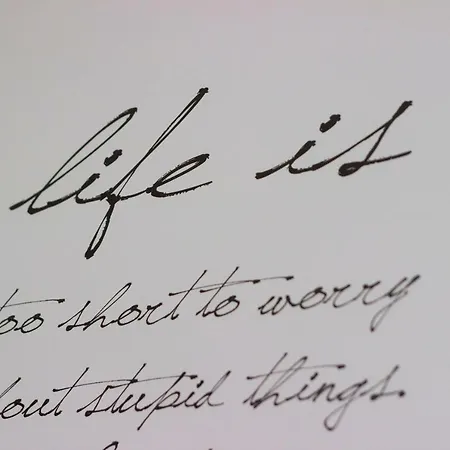 life is
too short to worry
bout stupid things.